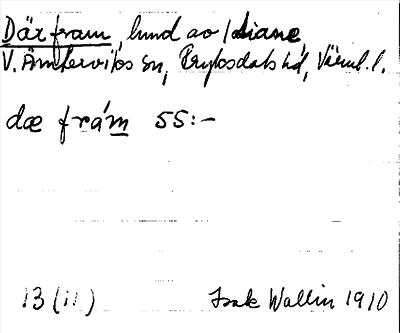 Där fram, lund av /diane,
V. Ämtervíks sn, Fryksdals hd, Värml. l.
dœ frám 55:-
13 (11)
Isak Wallin 1910